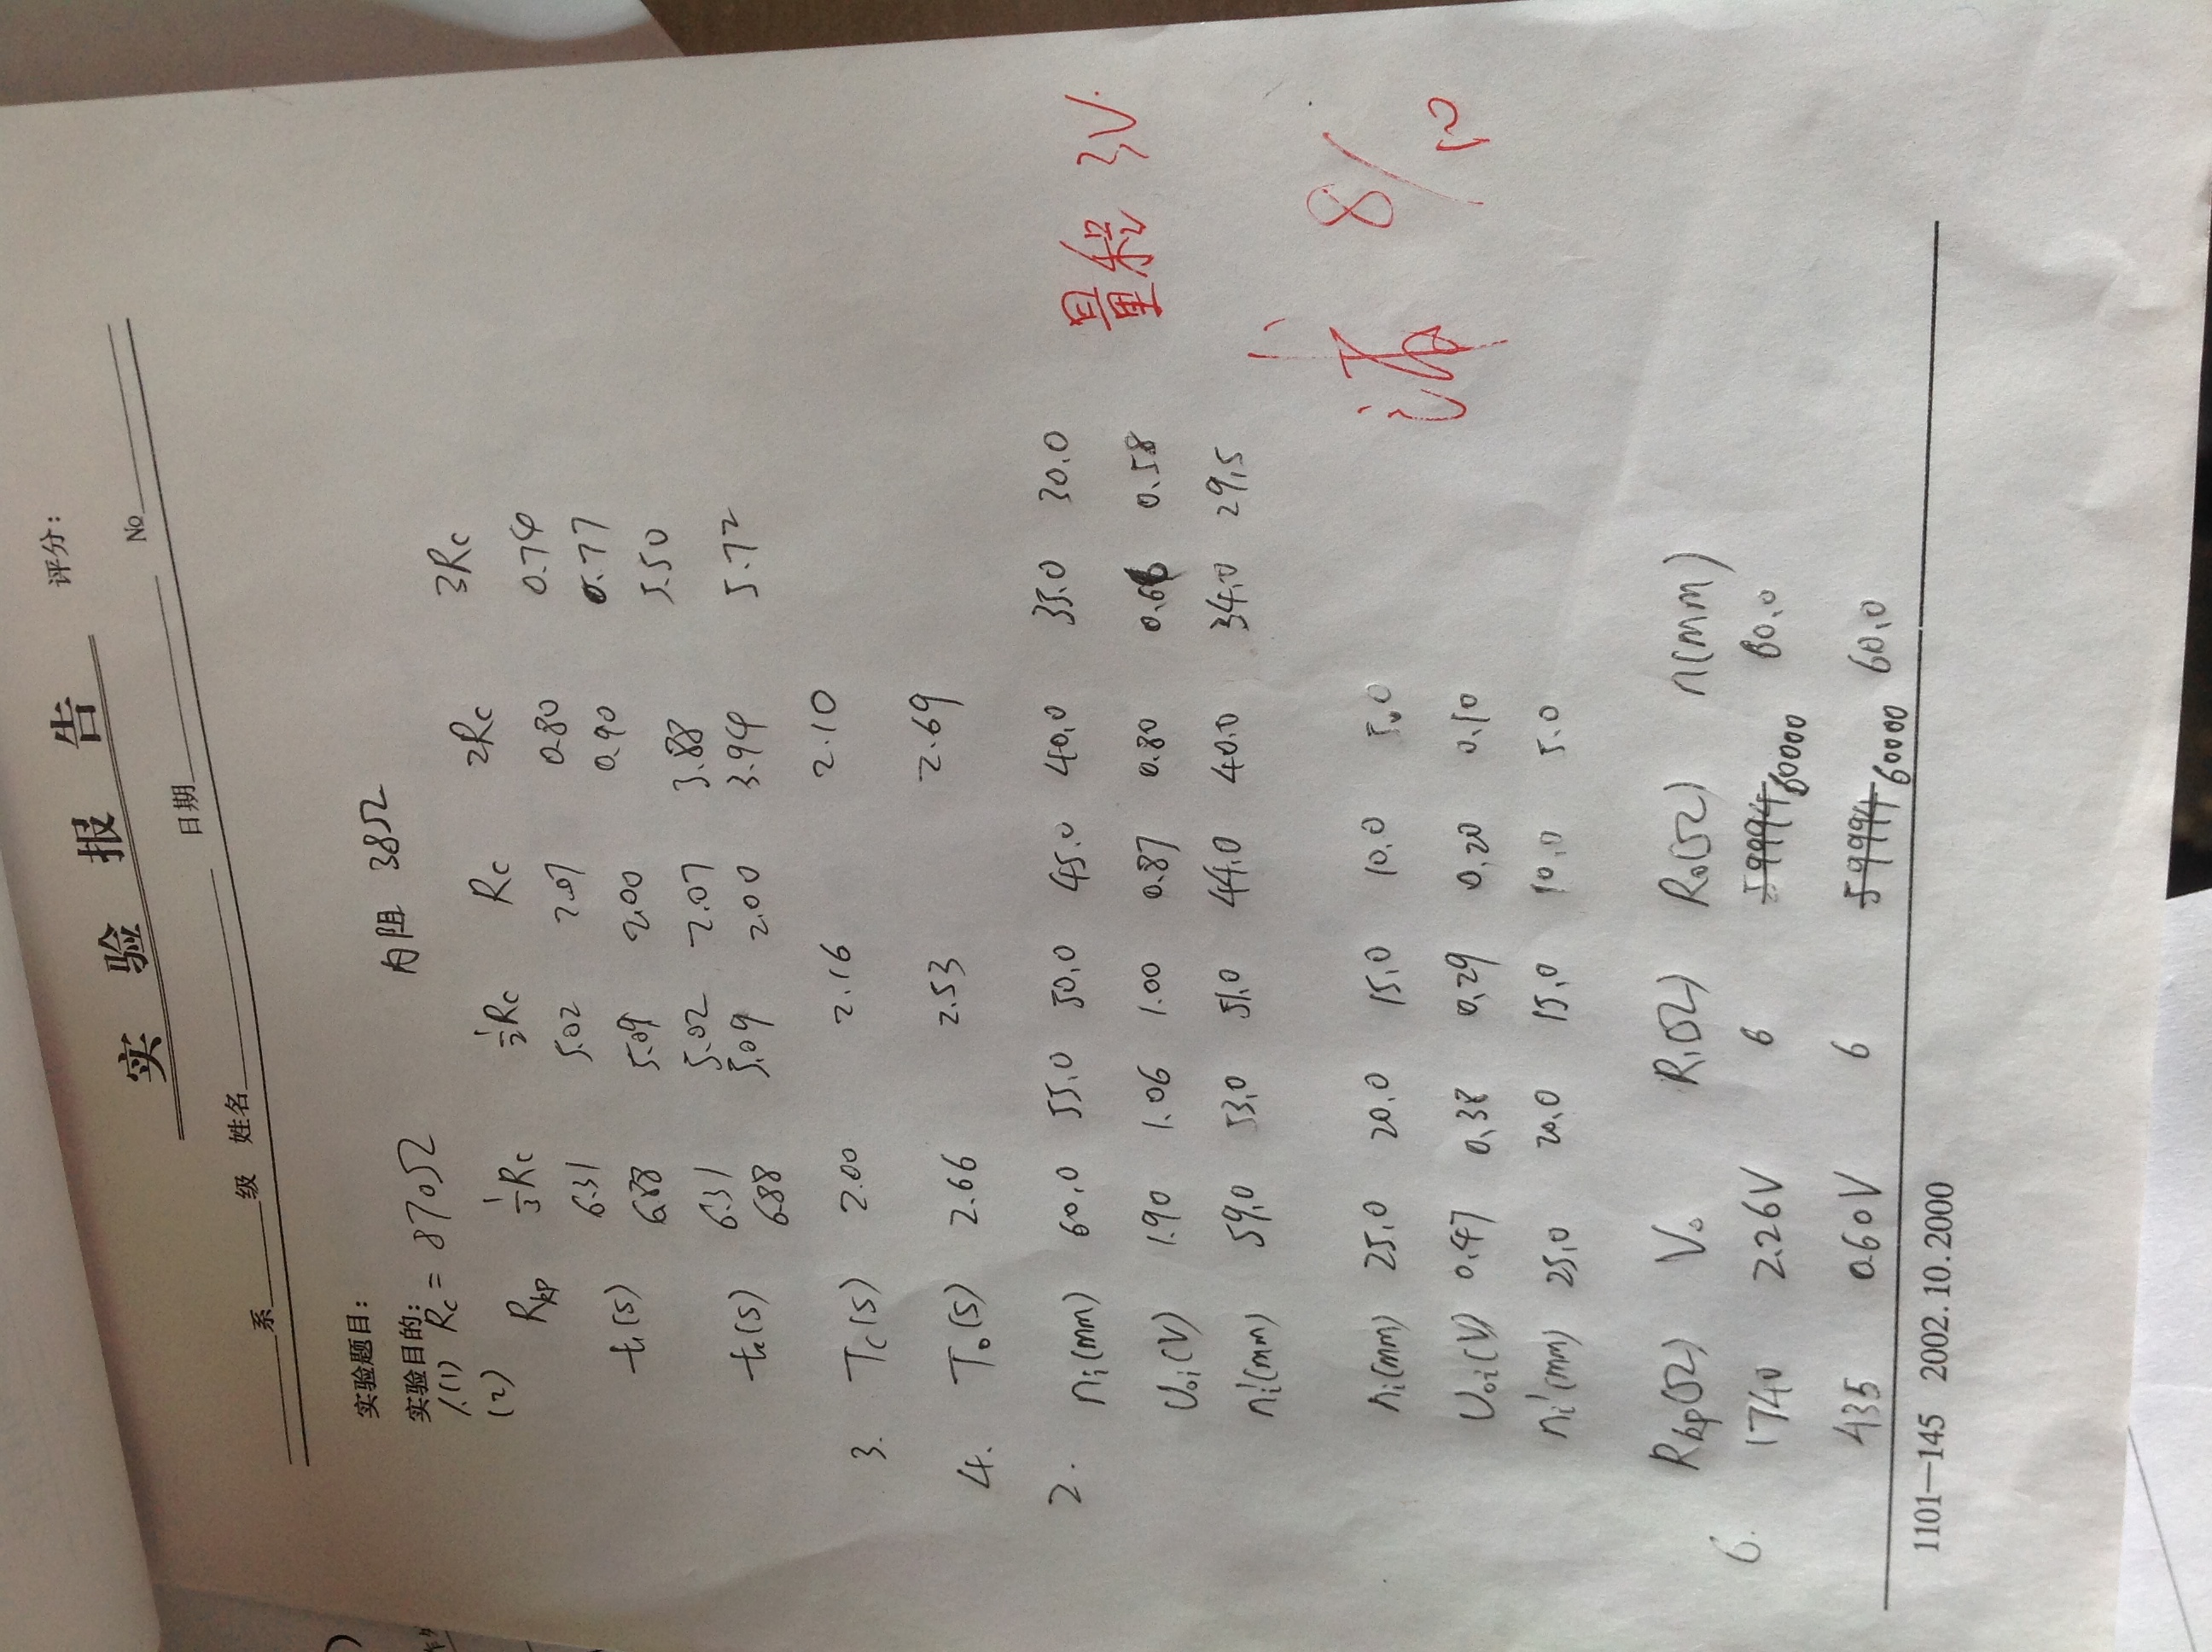 实验报告
评分:
No
系 级 姓名 日期
实验题目:
实验目的:
1.(1) Rc = 870Ω 内阻 38Ω
(2) Rkp 1/3Rc 1/2Rc Rc 2Rc 3Rc
t₁(s) 6.31 5.02 2.07 0.80 0.74
6.88 5.09 2.00 0.90 0.77
t₂(s) 6.31 5.02 2.07 3.88 5.50
6.88 5.09 2.00 3.94 5.72
3. Tc(s) 2.00 2.16 2.10
4. T₀(s) 2.66 2.53 2.69
2. nᵢ(mm) 60.0 55.0 50.0 45.0 40.0 35.0 30.0
U₀ᵢ(V) 1.90 1.06 1.00 0.87 0.80 0.58
nᵢ'(mm) 59.0 53.0 51.0 44.0 40.0 34.0 29.5
量程 3V.
nᵢ(mm) 25.0 20.0 15.0 10.0 5.0
U₀ᵢ(V) 0.47 0.38 0.29 0.20 0.10
nᵢ'(mm) 25.0 20.0 15.0 10.0 5.0
8/10
Rkp(Ω) V₀ R₁(Ω) R₀(Ω) n(mm)
6. 1740 2.26V 6 59994 60000 60.0
435 0.60V 6 59994 60000 60.0
1101—145 2002.10.2000